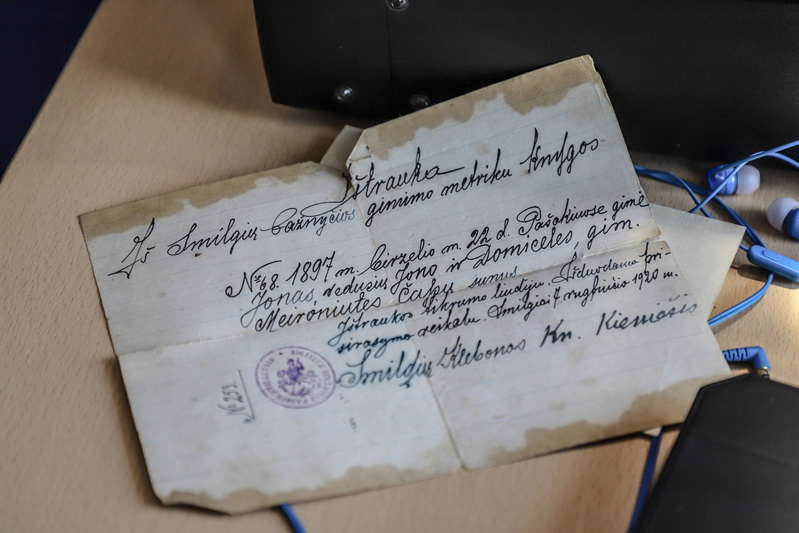 Ištrauka
Iš Smilgių bažnyčios gimimo metrikų Knygos
№ 68. 1897 m. Birželio m. 22 d. Pašakiuose gimė
Jonas, vedusių Jono ir Domicelės, gim.
Meironiutės Čapų sunus
Ištraukos tikrumo liudiju. Išduodama su-
sirašymo reikalu. Smilgiai 7 rugpiučio 1920 m.
Smilgių Klebonas Kn.
№ 253